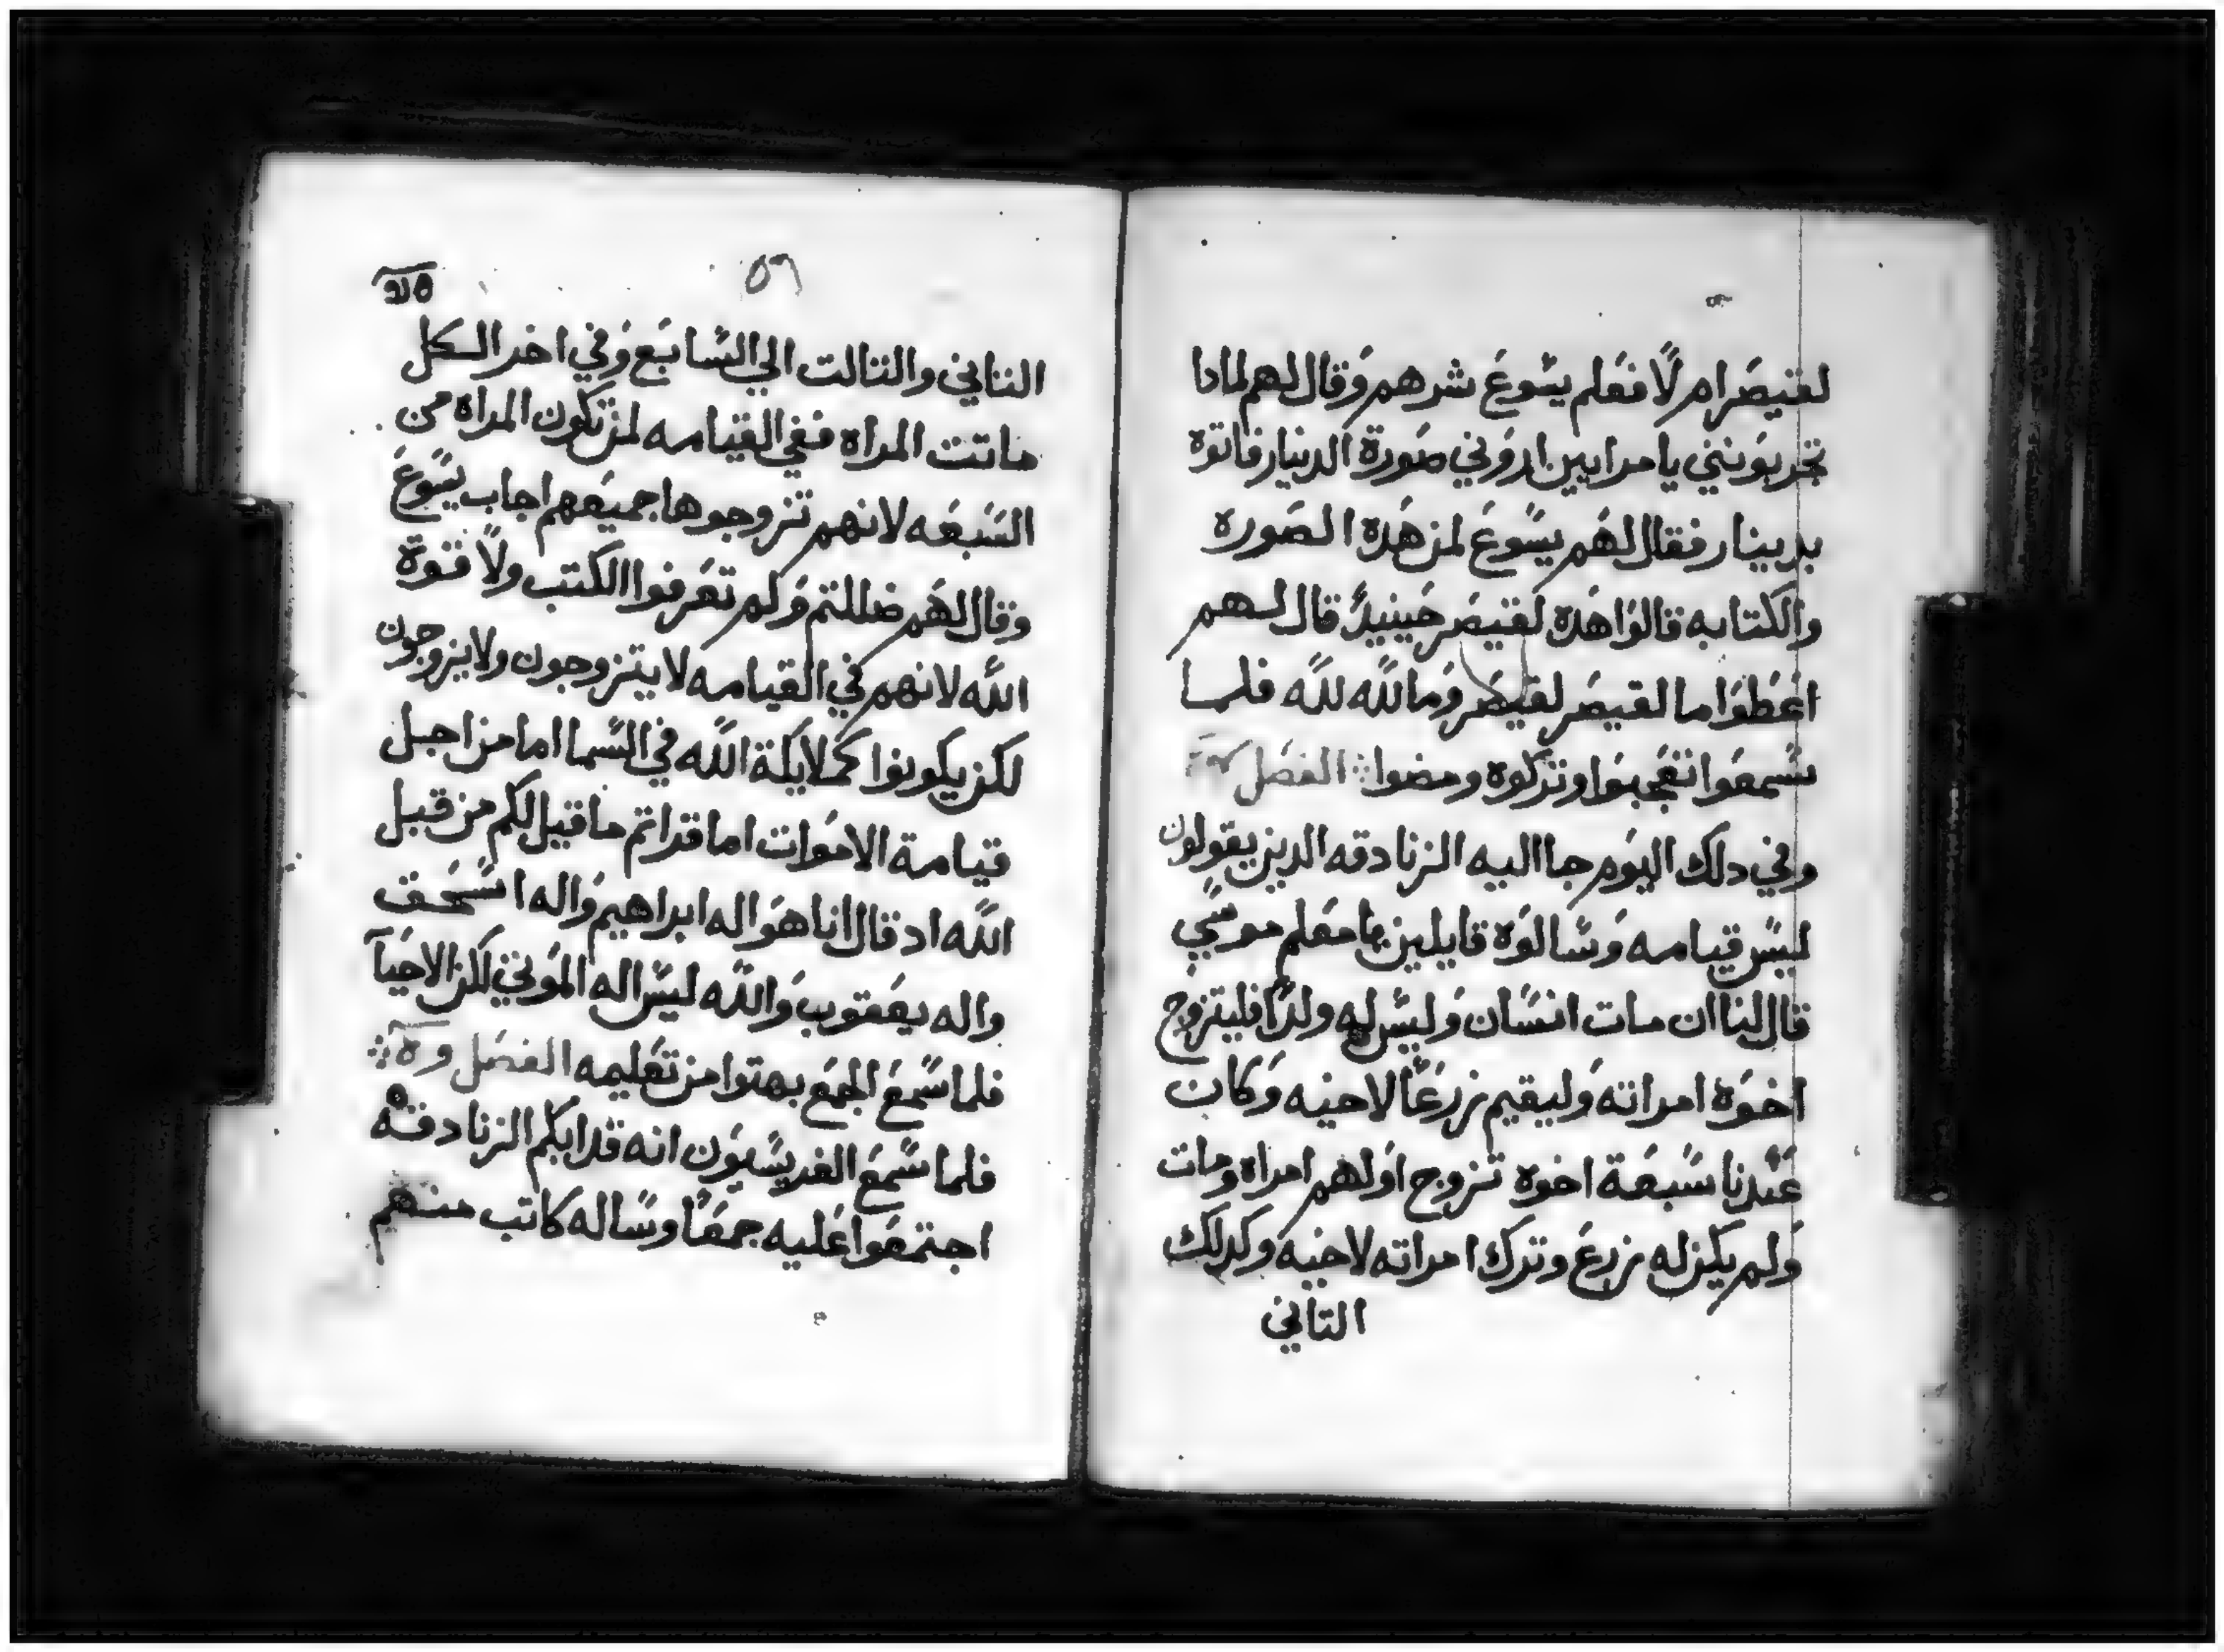 لقيصر ام لا فعلم يسوع شرهم وقال لهم لمادا
تجربونني يا مرايين اروني صورة الدينار فاتوه
بدينار فقال لهم يسوع لمن هده الصوره
والكتابه قالوا هده لقيصر حينيدً قال لهم
اعطوا ما لقيصر لقيصر وما لله لله فلما
سمعوا تعجبوا وتركوه ومضوا الفصل
وفي دلك اليوم جا اليه الزنادقه الدين يقولون
ليس قيامه وسالوه قايلين يا معلم موسي
قال لنا ان مات انسان وليس له ولدًا فليتزوج
اخوه امراته وليقيم زرعًا لاخيه وكان
عندنا سبعة اخوه تزوج اولهم امراه ومات
ولم يكن له زرع وترك امراته لاخيه وكدلك
التاني
٥٦
التاني والتالت الي السابع وفي اخر الكل
ماتت المراه ففي القيامه لمن تكون المراه من
السبعه لانهم تزوجوها جميعهم اجاب يسوع
وقال لهم ضللتم ولم تعرفوا الكتب ولا قوة
الله لانهم في القيامه لا يتزوجون ولا يزوجون
لكن يكونوا كملايكة الله في السما اما من اجل
قيامة الاموات اما قراتم ما قيل لكم من قبل
الله اد قال انا هو اله ابراهيم واله اسحق
واله يعقوب والله ليس اله الموتي لكن الاحيآ
فلما سمع الجمع بهتوا من تعليمه الفصل
فلما سمع الفريسيون انه قد ابكم الزنادقه
اجتمعوا عليه جمعًا وساله كاتب منهم